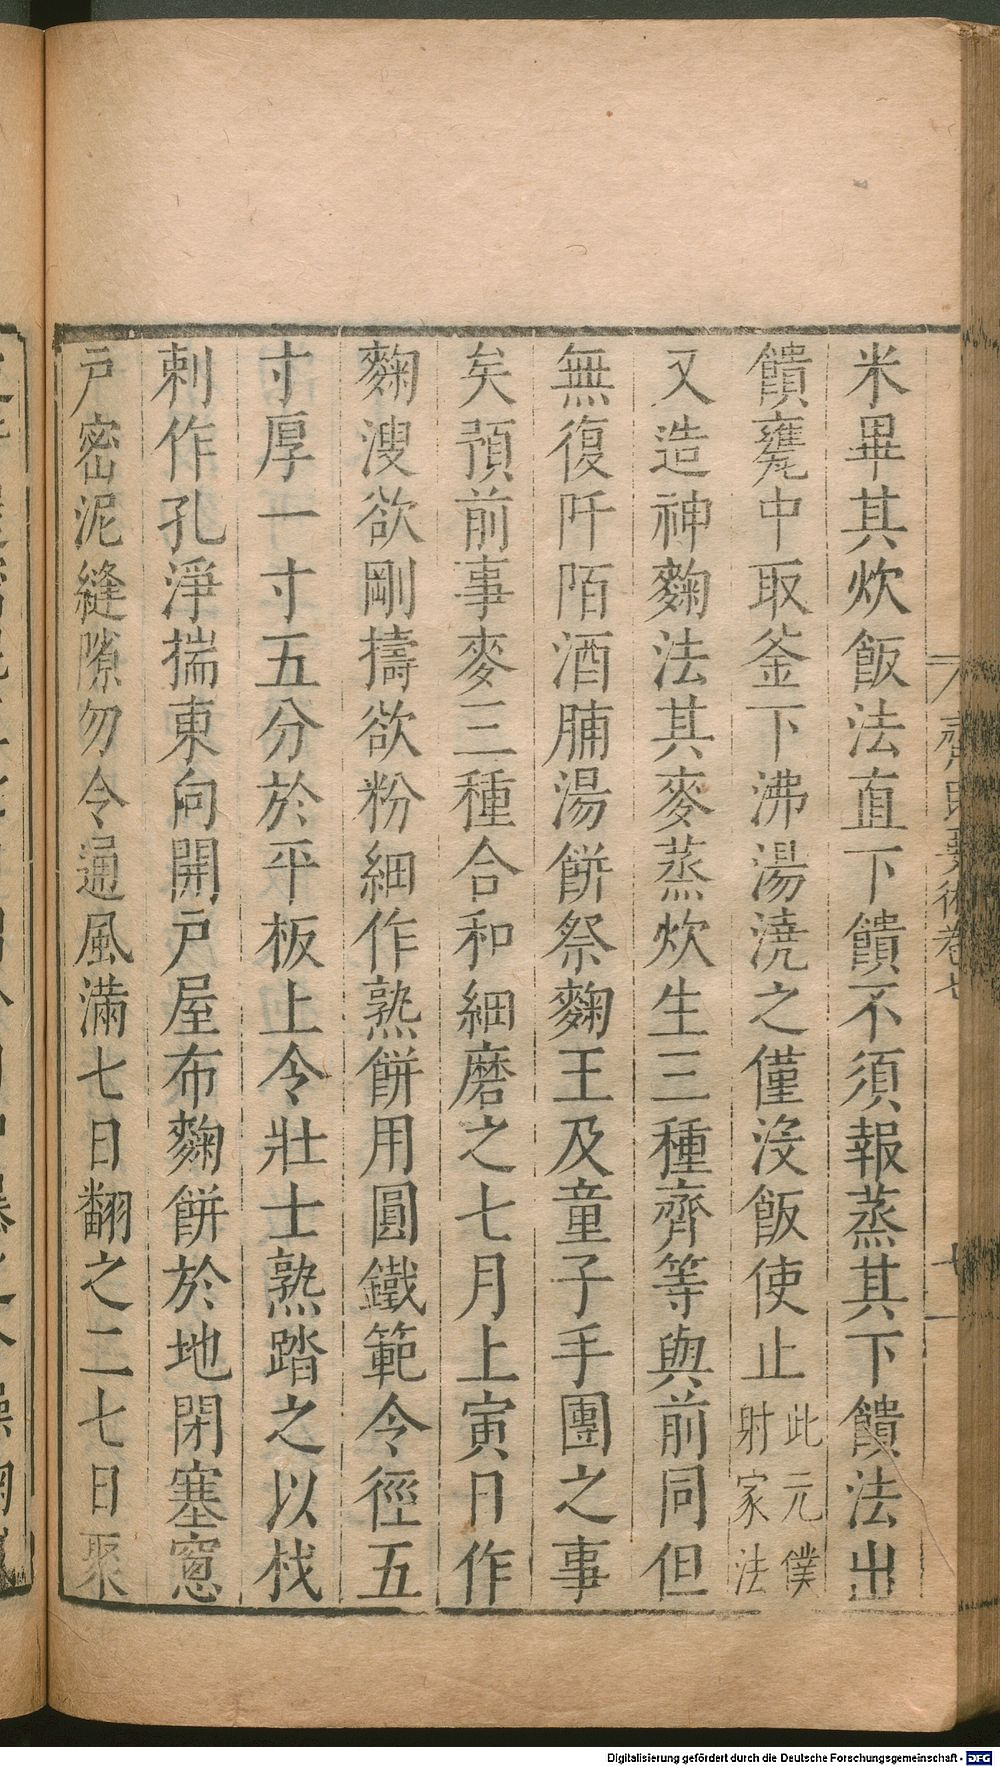 米畢其炊飯法直下饙不須報蒸其下饙法出
饙甕中取釜下沸湯澆之僅沒飯使止此元僕射家法
又造神麴法其麥蒸炊生三種齊等與前同但
無復阡陌酒脯湯餅祭麴王及童子手團之事
矣預前事麥三種合和細磨之七月上寅日作
麴溲欲剛擣欲粉細作熟餅用圓鐵範令徑五
寸厚一寸五分於平板上令壯士熟踏之以杙
刺作孔淨揣東向開戶屋布麴餅於地閉塞窻
戶密泥縫隙勿令通風滿七日翻之二七日聚
齊民要術卷七
Digitalisierung gefördert durch die Deutsche Forschungsgemeinschaft - DFG